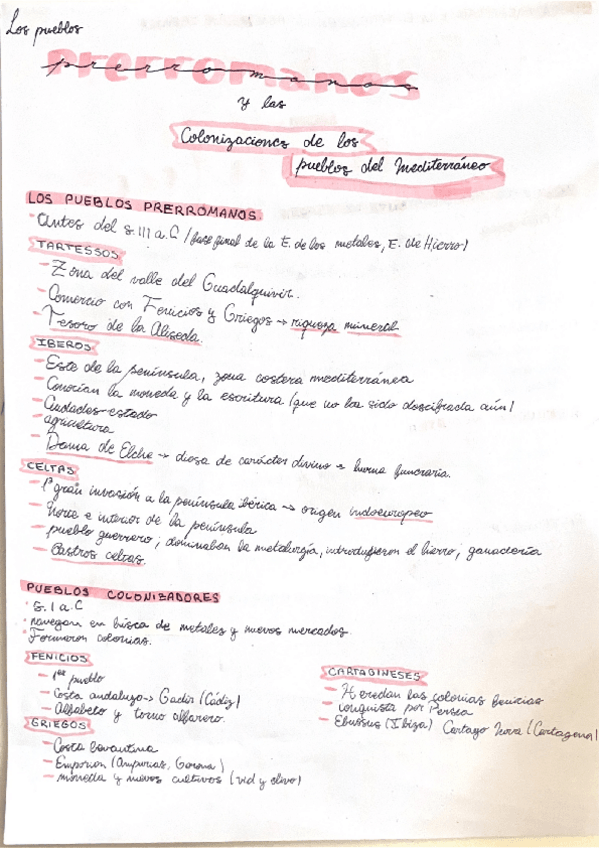 Los pueblos
prerromanos
y las
Colonizaciones de los
pueblos del Mediterráneo
LOS PUEBLOS PRERROMANOS.
· Antes del s.III a.C (fase final de la E. de los metales, E. de Hierro)
TARTESSOS
- Zona del valle del Guadalquivir.
- Comercio con Fenicios y Griegos → riqueza mineral
- Tesoro de la Aliseda.
IBEROS
- Este de la península, zona costera mediterránea
- Conocían la moneda y la escritura (que no ha sido descifrada aún)
- Ciudades-estado
- agricultura
- Dama de Elche → diosa de carácter divino → funeraria.
CELTAS
- 1ª gran invasión a la península ibérica → origen indoeuropeo
- Norte e interior de la península
- pueblo guerrero, dominaban la metalurgía, introdujeron el hierro, ganadería
- Castros celtas.
PUEBLOS COLONIZADORES
· s. I a.C
· navegan en búsca de metales y nuevos mercados.
· Formaron colonias.
FENICIOS
- 1er pueblo
- Costa andaluza → Gadir (Cádiz)
- Alfabeto y torno alfarero.
GRIEGOS
- Costa levantina
- Emporion (Ampurias, Gerona)
- moneda y nuevos cultivos (vid y olivo)
CARTAGINESES
- Heredan las colonias fenicias
- conquista por Persia
- Ebussus (Ibiza) Cartago Nova (Cartagena)